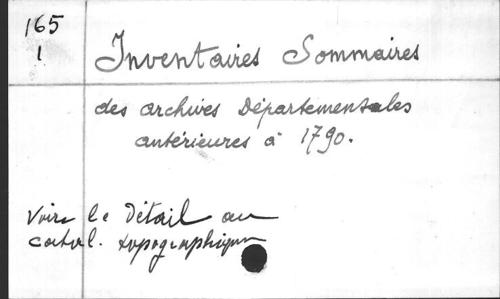 165
1
Inventaires Sommaires
des archives Départementales
antérieures à 1790.
Voir le Détail au
catal. topographique